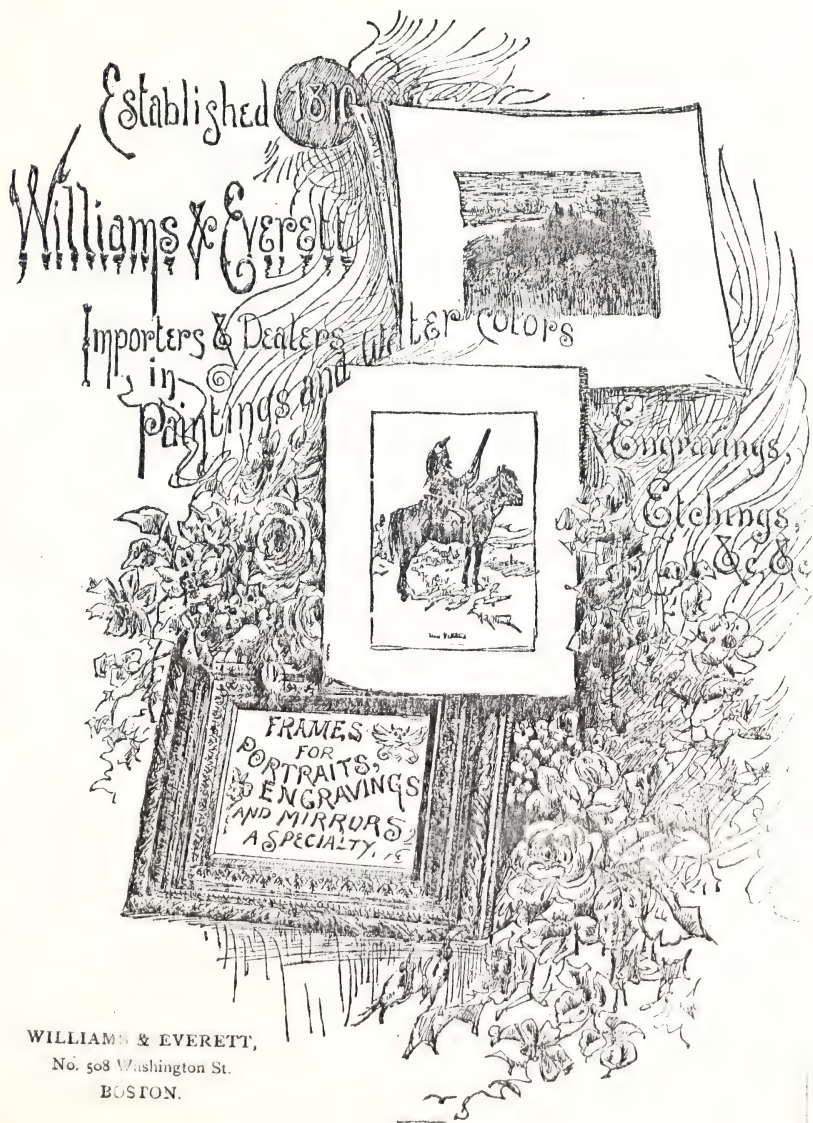 Established 1810
Williams & Everett
Importers & Dealers
in
Paintings and Water Colors
Engravings,
Etchings,
&c. &c.
FRAMES
FOR
PORTRAITS,
ENGRAVINGS
AND MIRRORS
A SPECIALTY.
WILLIAMS & EVERETT,
No. 508 Washington St.
BOSTON.